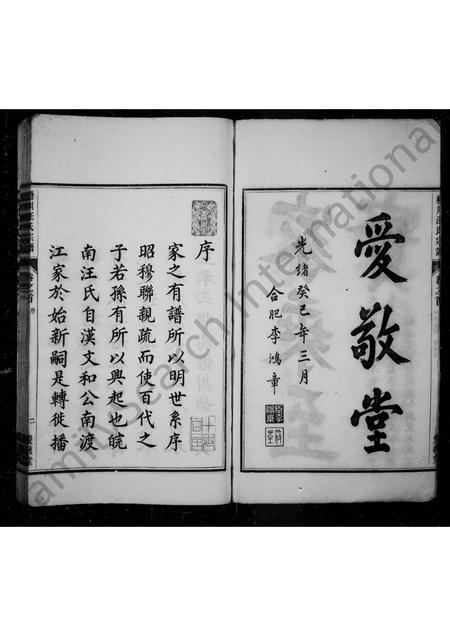 愛敬堂
光緒癸巳年三月
合肥李鴻章
序
家之有譜所以明世系序
昭穆聯親疏而使百代之
子若孫有所以興起也皖
南汪氏自漢文和公南渡
江家於始新嗣是轉徙播
序
二
FamilySearch International